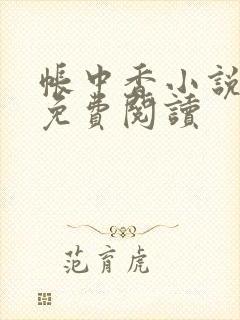 帳中香小說
免費閱讀
范育虎